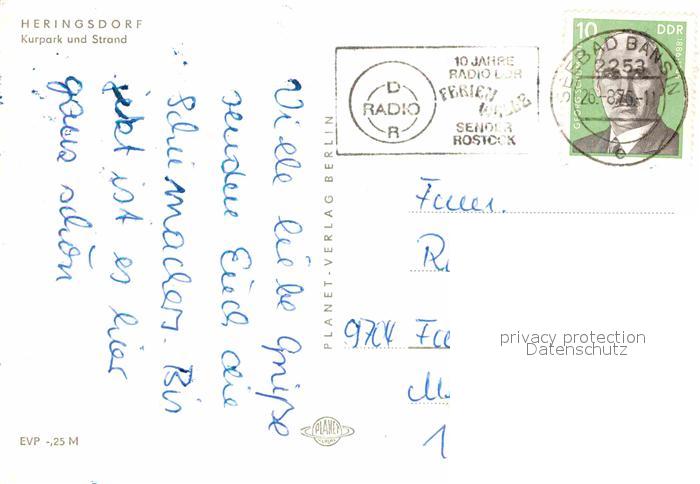 HERINGSDORF
Kurpark und Strand
Viele liebe Grüße
senden Euch die
Schumacher. Bis
jetzt ist es hier
ganz schön
PLANET-VERLAG BERLIN
10 JAHRE
RADIO DDR
FERIEN
WELLE
SENDER
ROSTOCK
D
RADIO
R
SEEBAD BANSIN
2253
26.-8.76.-11
e
10
DDR
Fam.
R
Fa
privacy protection
Datenschutz
M
1
EVP -,25 M
PLANET